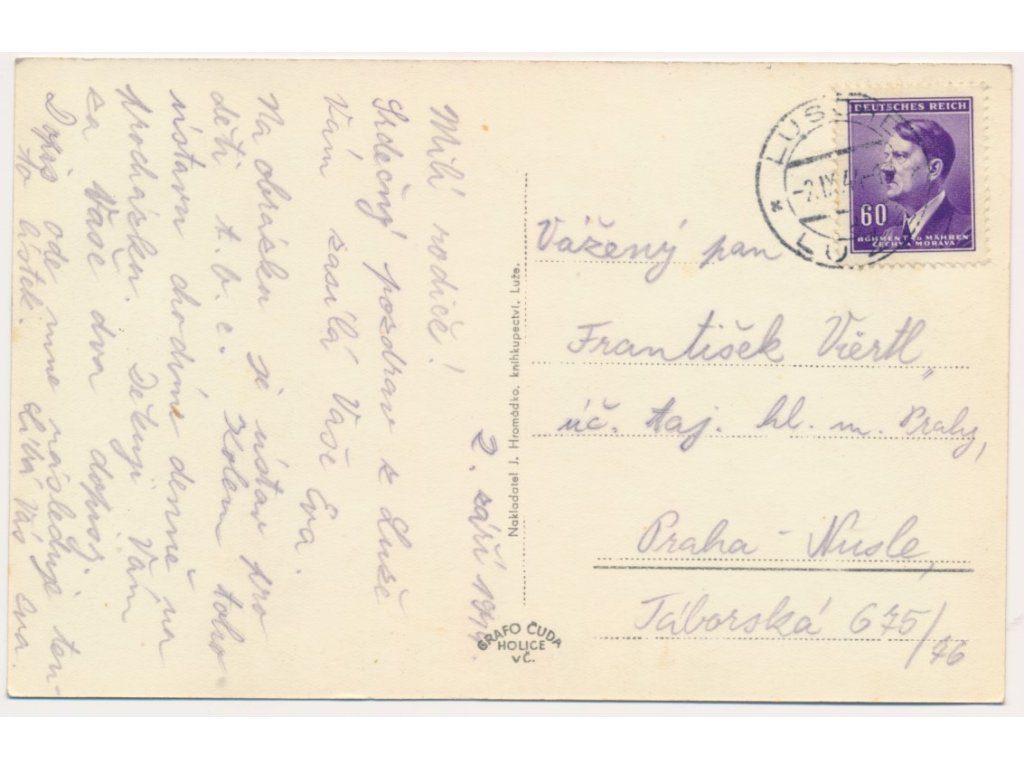 2. září 194
Milí rodiče!
Srdečný pozdrav z Luže
Vám zasílá Vaše Eva.
Na obrázku je ústav pro
děti t. b. c. Kolem toho
ústavu chodíme denně na
procházku. Děkuji Vám
za Vaše dva dopisy.
Dopis ode mne následuje ten-
to lístek. Líbá Vás Eva.
Nakladatel J. Hromádko, knihkupectví, Luže.
GRAFO ČUDA
HOLICE
VČ.
DEUTSCHES REICH
60
BÖHMEN U. MÄHREN
ČECHY A MORAVA
-2.IX.4
Vážený pan
František Viertl,
úč. taj. hl. m. Prahy,
Praha - Nusle,
Táborská 675/76